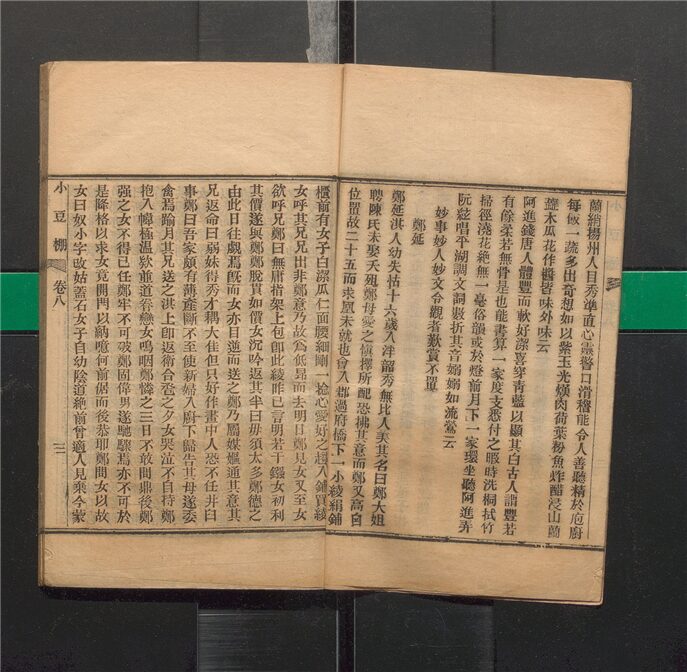 蘭納揚州人目秀準直心靈警口滑稽能令人善聽精於庖廚
每飯一蔬多出奇想如以紫玉光燠肉荷葉粉魚炸醋浸山藥
薤木瓜花作醬皆味外味云
阿進錢唐人體豐而軟好潔喜穿青藍以顯其白古人謂豐若
有餘柔若無骨是也能書算一家度支悉付之暇時洗桐拭竹
掃徑澆花絶無一毫俗韻或於燈前月下一家環坐聽阿進弄
阮絃唱平湖調文詞數折其音嫋嫋如流鶯云
妙事妙人妙文令觀者歎賞不置
鄭延
鄭延淇人幼失怙十六歲入泮韶秀無比人美其名曰鄭大姐
聘陳氏未娶夭殂鄭母愛之慎擇所配恐拂其意而鄭又高自
位置故二十五而求凰未就也會入郡過府橋下一小綾絹鋪
櫃前有女子白潔瓜仁面腰細剛一捻心愛好之趨入鋪買綾
女呼其兄兄出非鄭意乃故爲低昂而去明日鄭見女又至女
欲呼兄鄭曰無庸指架上包卽此綾昨已言明若干錢女初利
其價遂與鄭鄭脫貰如價女沉吟返其半曰毋須太多鄭德之
由此日往覘焉旣而女亦目逆而送之鄭乃屬媒嫗通其意其
兄返命曰弱妹得秀才耦大佳但只好作畫中人恐不任井臼
事鄭曰吾家頗有薄產斷不至使新婦入廚下歸告其母遂委
禽焉踰月其兄送之淇上卽返衛合巹之夕女哭泣不自持鄭
抱入幃極溫欵並道眷戀女嗚咽鄭憐之三日不敢問鼎後鄭
强之女不得已任鄭牢不可破鄭固偉男遂馳驟焉亦不可於
是降格以求女竟開門以納噫何前倨而後恭耶鄭問女以故
女曰奴小字改姑蓋石女子自幼陰道絶前曾適人見棄今蒙
小豆棚
卷八